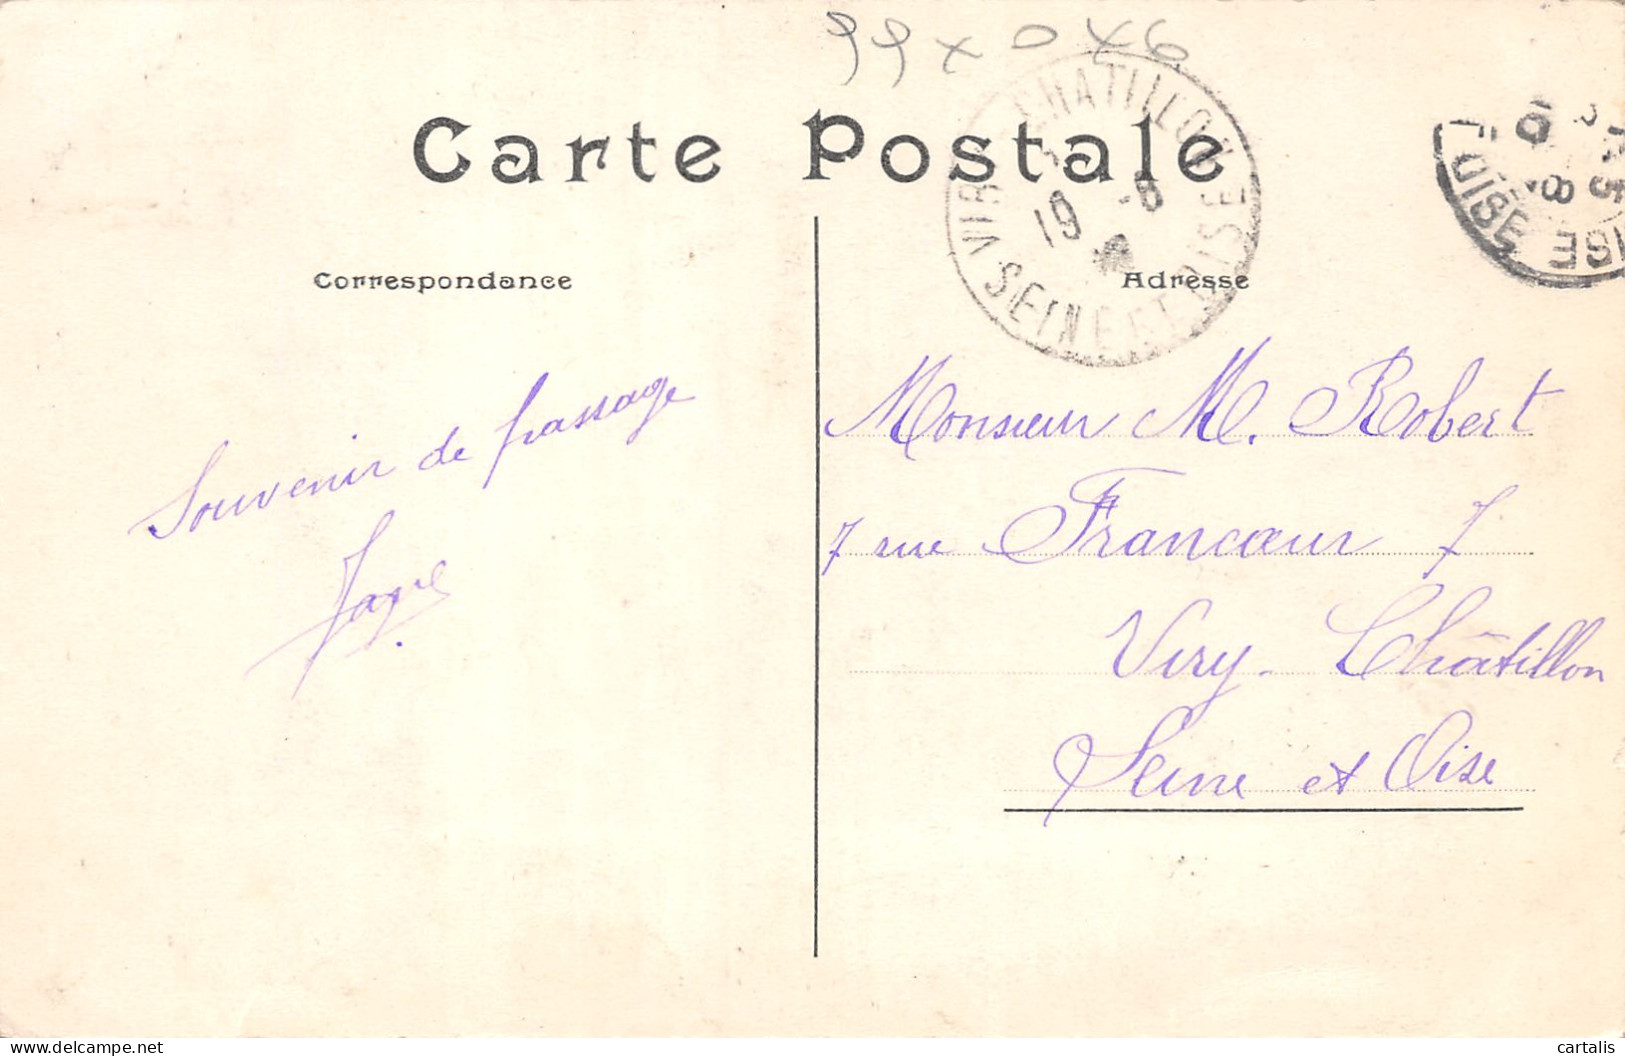 99x046
Carte Postale
CHATILLON
19 -8
SEINE ET OISE
OISE
Correspondance
Adresse
Souvenir de passage
Monsieur M. Robert
7 rue Francœur 7
Viry-Châtillon
Seine et Oise
delcampe.net
cartalis